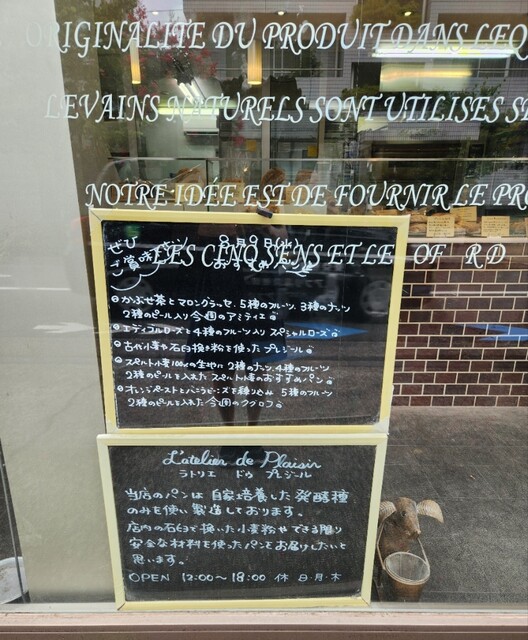 ORIGINALITE DU PRODUIT DANS LEQ
LEVAINS NATURELS SONT UTILISES SE
NOTRE IDÉE EST DE FOURNIR LE PRO
LES CINQ SENS ET LE OF RD
ぜひ
ご賞味下さい
8月9日(水)
おすすめパン
かぶせ茶とマロングラッセ、5種のフルーツ、3種のナッツ
2種のピール入り 今週のアミティエ
エディブルローズと4種のフルーツ入り スペシャルローズ
古代小麦や石臼挽き粉を使った プレジール
スペルト小麦100%の生地に 2種のナッツ、4種のフルーツ
2種のピールを入れた スペルト小麦のおすすめパン
オレンジペーストとバニラビーンズを練り込み 5種のフルーツ
2種のピールを入れた 今週のクグロフ
L'atelier de Plaisir
ラトリエ ドゥ プレジール
当店のパンは 自家培養した 発酵種
のみを使い 製造しております。
店内の石臼で挽いた小麦粉や できる限り
安全な材料を使ったパンをお届けしたいと
思います。
OPEN 12:00～18:00 休 日・月・木